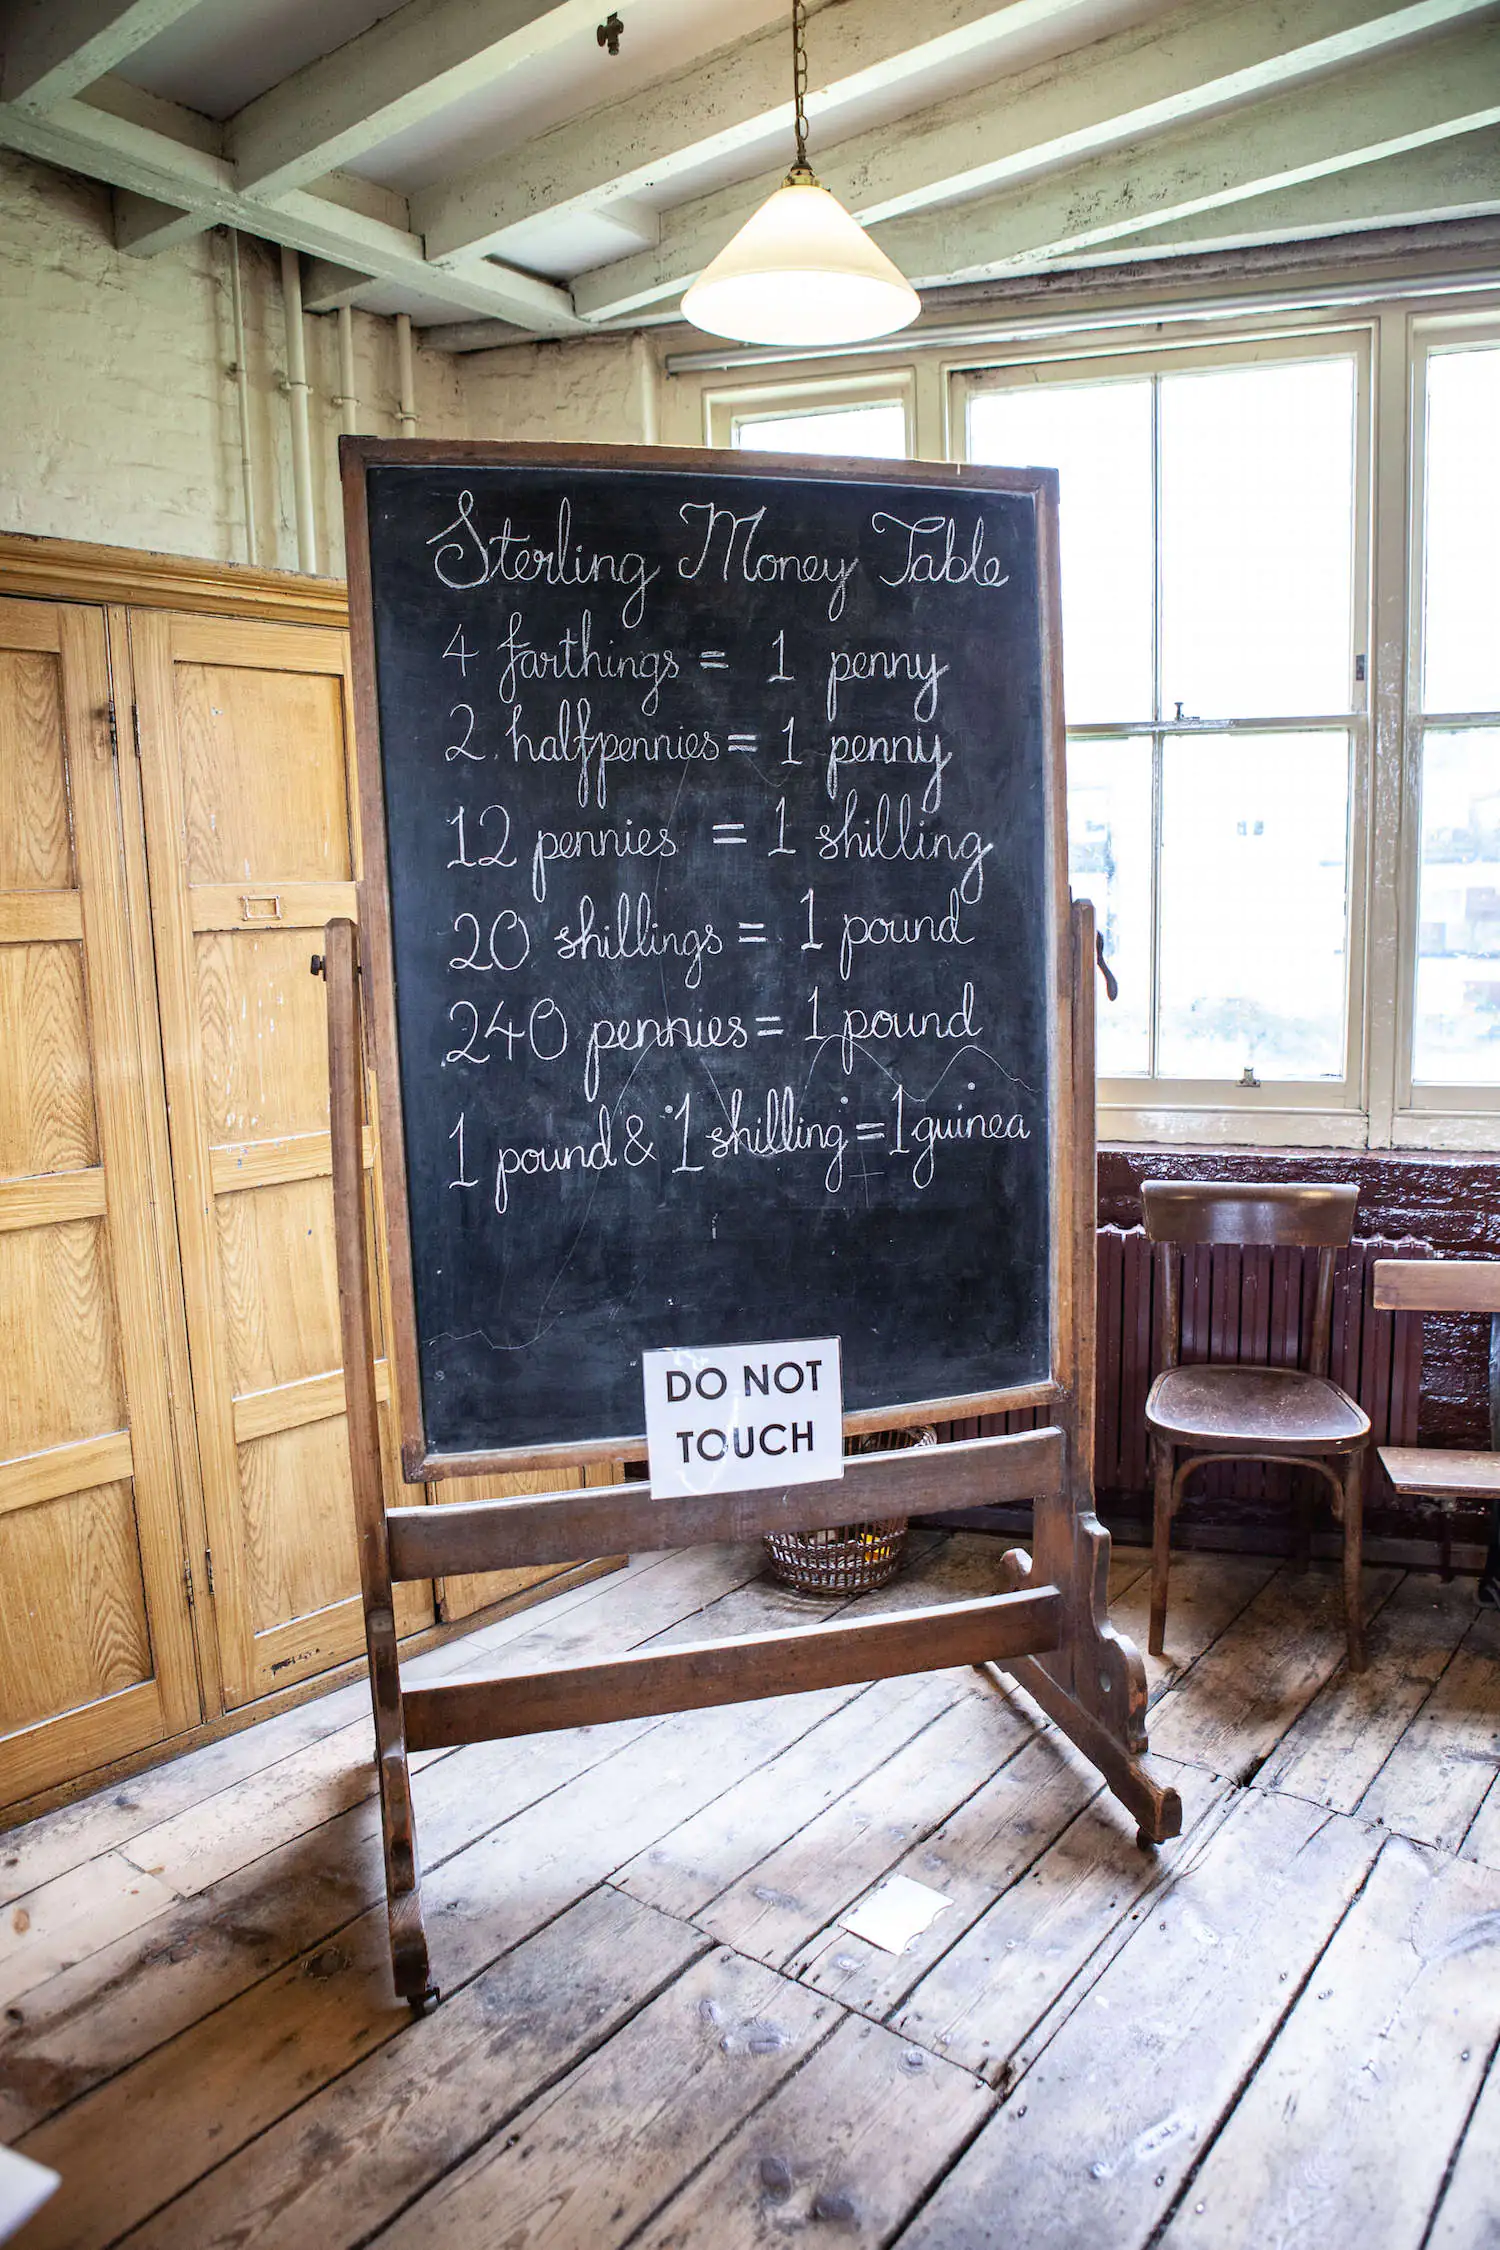 Sterling Money Table
4 farthings = 1 penny
2 halfpennies = 1 penny
12 pennies = 1 shilling
20 shillings = 1 pound
240 pennies = 1 pound
1 pound & 1 shilling = 1 guinea
DO NOT
TOUCH